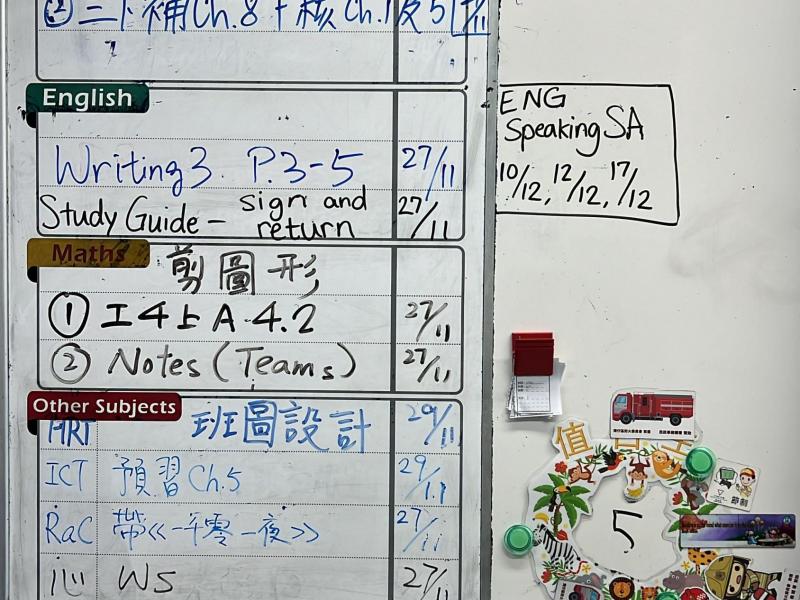 ② 三下補Ch.8 + 核Ch.1及5
English
Writing3 P.3-5 27/11
Study Guide - sign and return 27/11
ENG
Speaking SA
10/12, 12/12, 17/12
Maths
剪圖形
① 工4上A 4.2 27/11
② Notes (Teams) 27/11
Other Subjects
ART 班圖設計 29/11
ICT 預習Ch.5 29/11
RaC 帶<<一千零一夜>> 27/11
心 WS 27/11
值日生
5